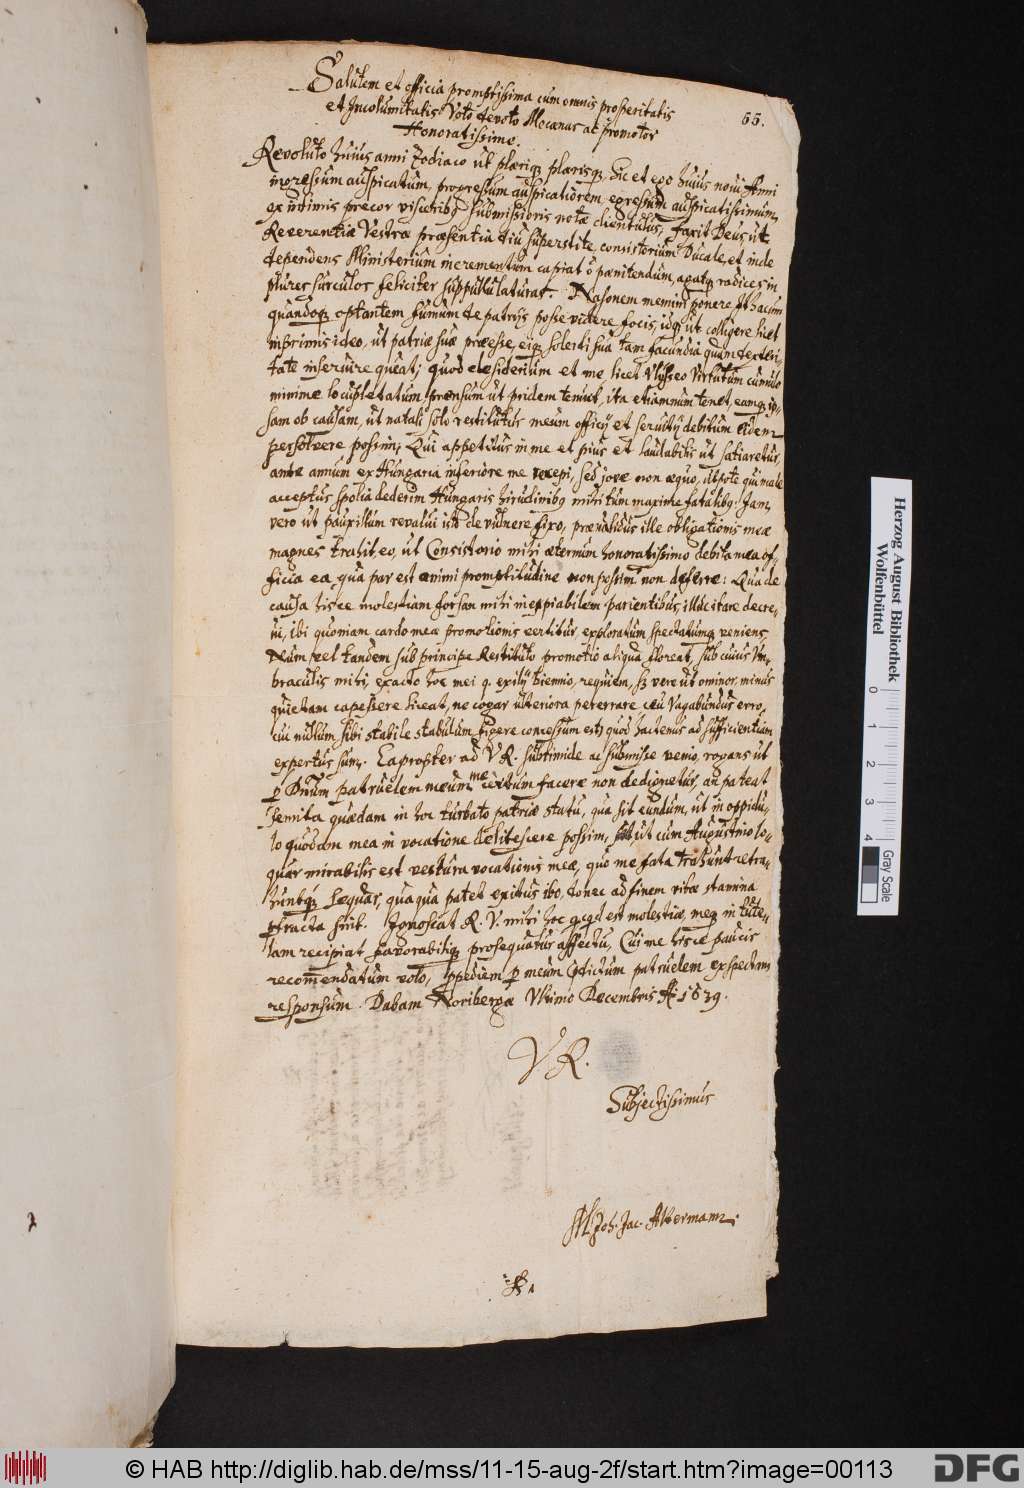 55.
Salutem et officia promptissima cum omnis prosperitatis
et Incolumitatis Voto devoto Mecœnas ac promotor
Honoratissime.
Revoluto huius anni Zodiaco ut plæriq; plærisq;, sic et ego huius novi Anni
ingressum auspicatum, progressum auspicatiorem, egressum auspicatissimum,
ex intimis precor visceribq submissioris notæ clientulus, faxit Deus ut
Reverentiæ Vestræ præsentia diu superstite, consistorium Ducale, et inde
dependens Ministerium incrementum capiat ō pœnitendum, agatq radices in
plures surculos feliciter suppullulaturas. Nasonem memini ponere Ithacum
quandoq; optantem fumum de patrijs posse videre focis, idq; ut colligere licet
inprimis ideo, ut patriæ suæ præesse, eiq; solerti sua tam facundia quàm dexteri-
tate inservire queat; quod desiderium et me licet Ulysseo Virtutum cumulo
minime locupletatum prensum ut pridem tenuit, ita etiamnum tenet, eamq; ip-
sam ob causam, ut natali solo restitutus meum officij et servitij debitum Eidem
persolvere possim; Qui appetitus in me et pius et laudabilis ut satiaretur,
ante annum ex Hungaria inferiore me recepi, sed jove non æquo, utpote qui male
acceptus spolia dederim Hungaris hirudinibq mihi tum maxime fatalibq; Jam
vero ut pauxillum revalui isto de vulnere fixo, prævalidus ille obligationis meæ
magnes trahit, eo, ut Consistorio mihi æternum honoratissimo debita mea of-
ficia ea, qua par est animi promptitudine non possim non deferre: Qua de
causa hisce molestiam forsan mihi inexpiabilem parientibus, illic itare decre-
vi, ibi quoniam cardo meæ promotionis vertitur, exploratum spectatumq veniens,
Num vel tandem sub principe Restituto promotio aliqua floreat, sub cuius Um-
braculis mihi, exacto hoc mei q. exilij biennio, requiem, sz vere ut ominor, minus
quietam capessere liceat, ne cogar ulteriora pererrare ceu Vagabundus erro,
cui nullum sibi stabile stabulum figere concessum est; quod hactenus ad sufficientiam
expertus sum. Eapropter ad V R. subtimide ac submisse venio, rogans ut
p Dnum patruelem meum me certum facere non dedignetur, an pateat
semita quædam in hoc turbato patriæ statu, qua sit eundum, ut in oppidu-
lo quodam mea in vocatione delitescere possim, ut cum Augustino lo-
quar mirabilis est vestura vocationis meæ, quo me fata trahunt retra-
huntq; sequar, quaqua patet exitus ibo, donec ad finem vitæ stamina
pfracta sint. Ignoscat R. V. mihi hoc qcqd est molestiæ, meq in tute-
lam recipiat favorabiliq prosequatur affectu, Cui me hisce paucis
recommendatum volo, ppediem p meum dictum patruelem exspectans
responsum. Dabam Noribergæ Ultimo Decembris Aō 1639.
V R.
Subjectissimus
M. Joh. Jac. Aldermann.
Herzog August Bibliothek
Wolfenbüttel
0 1 2 3 4
Gray Scale
© HAB http://diglib.hab.de/mss/11-15-aug-2f/start.htm?image=00113
DFG